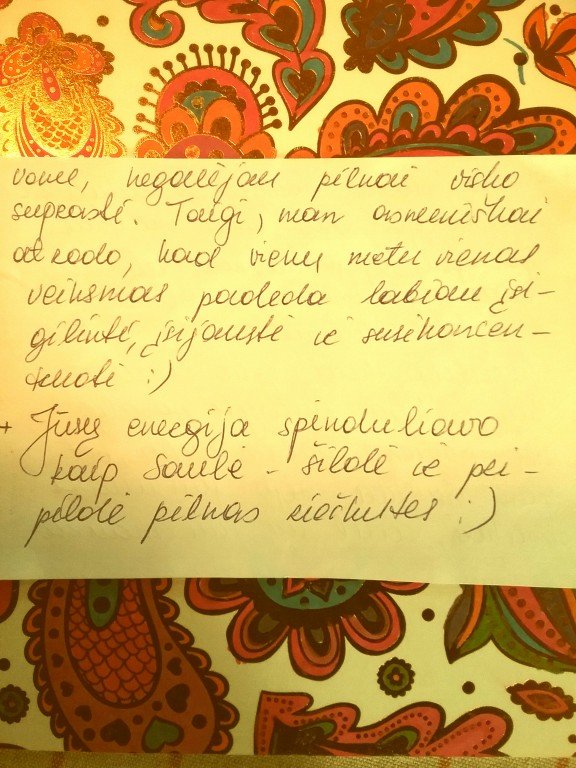 negalėjau pilnai visko
suprasti. Taigi, man asmeniškai
atrodo, kad vienu metu vienas
veiksmas padeda labiau įsi-
gilinti, įsijausti ir susikoncen-
truoti :)
+ Jūsų energija spinduliavo
kaip Saulė - šildė ir pri-
pildė pilnas kertes :)